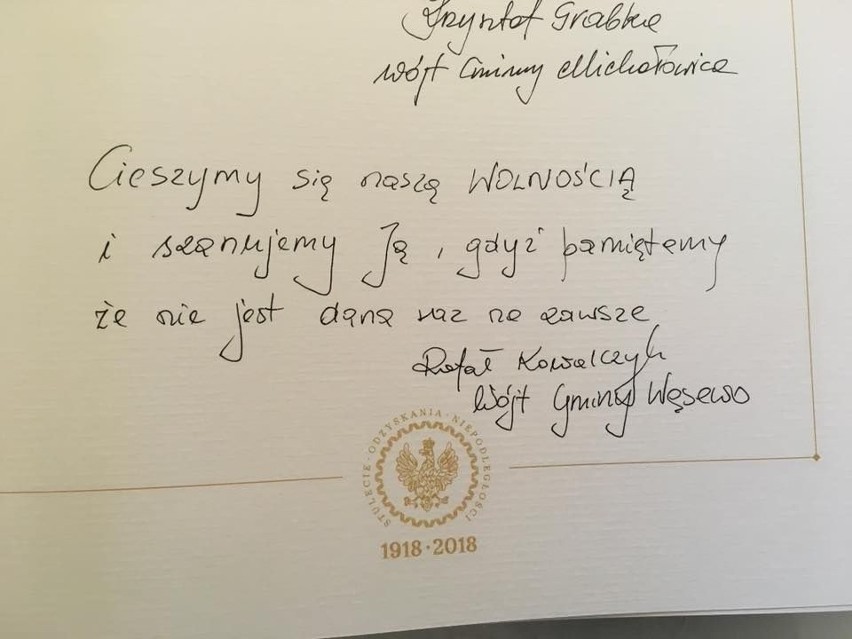 Krzysztof Grabka
Wójt Gminy Michałowice
Cieszymy się naszą WOLNOŚCIĄ
i szanujemy Ją, gdyż pamiętamy
że nie jest dana raz na zawsze
Rafał Kowalczyk
Wójt Gminy Wąsewo
STULECIE · ODZYSKANIA · NIEPODLEGŁOŚCI
1918 · 2018